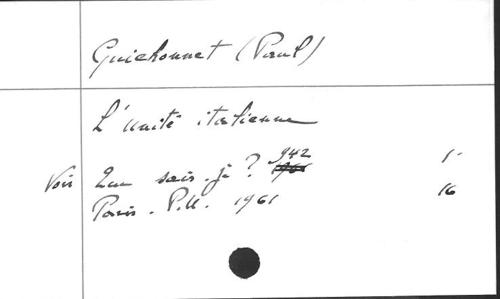 Guichonnet (Paul)
L'unité italienne
Voir Que sais-je ? 942 1
Paris. P.U. 1961 16